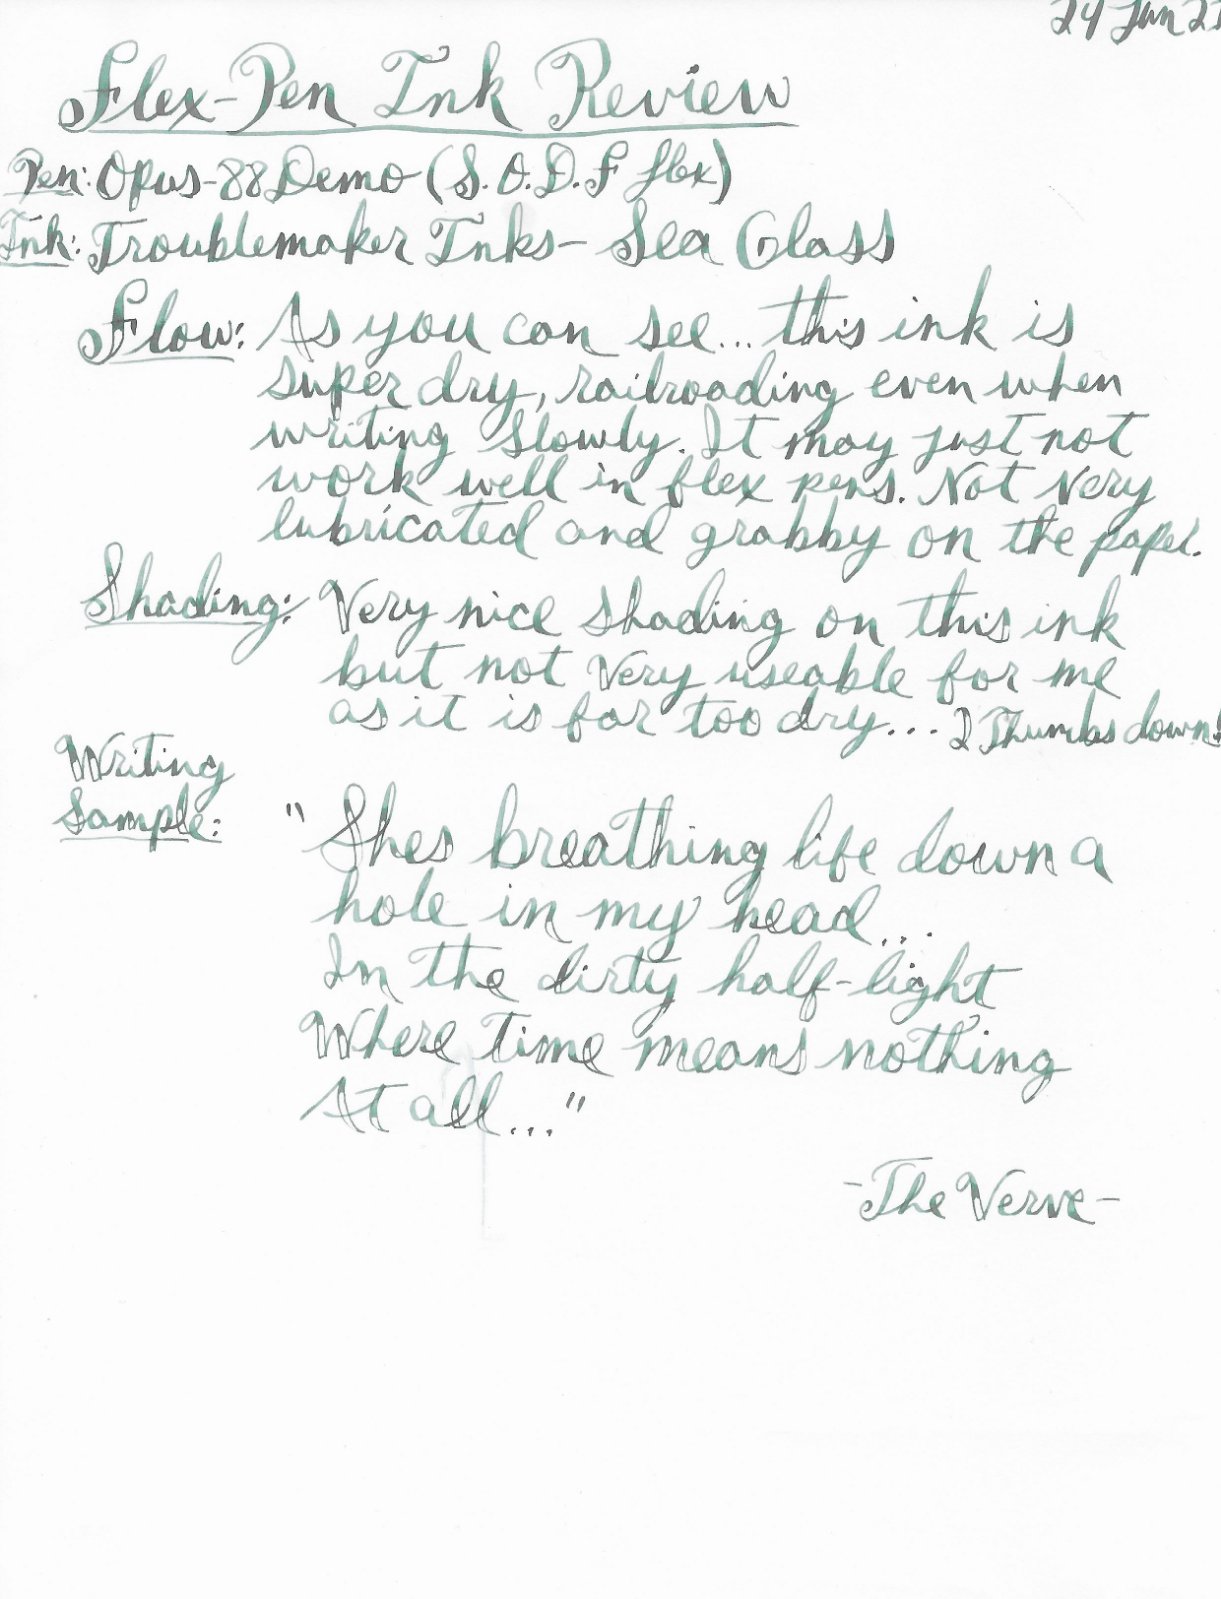 24 Jan 23
Flex-Pen Ink Review
Pen: Opus-88 Demo (S.O.D.F flex)
Ink: Troublemaker Inks- Sea Glass
Flow: As you can see... this ink is
super dry, railroading even when
writing slowly. It may just not
work well in flex pens. Not very
lubricated and grabby on the paper.
Shading: Very nice shading on this ink
but not very useable for me
as it is far too dry... 2 Thumbs down!
Writing
Sample: "Shes breathing life down a
hole in my head...
In the dirty half-light
Where time means nothing
At all..."
-The Verve-